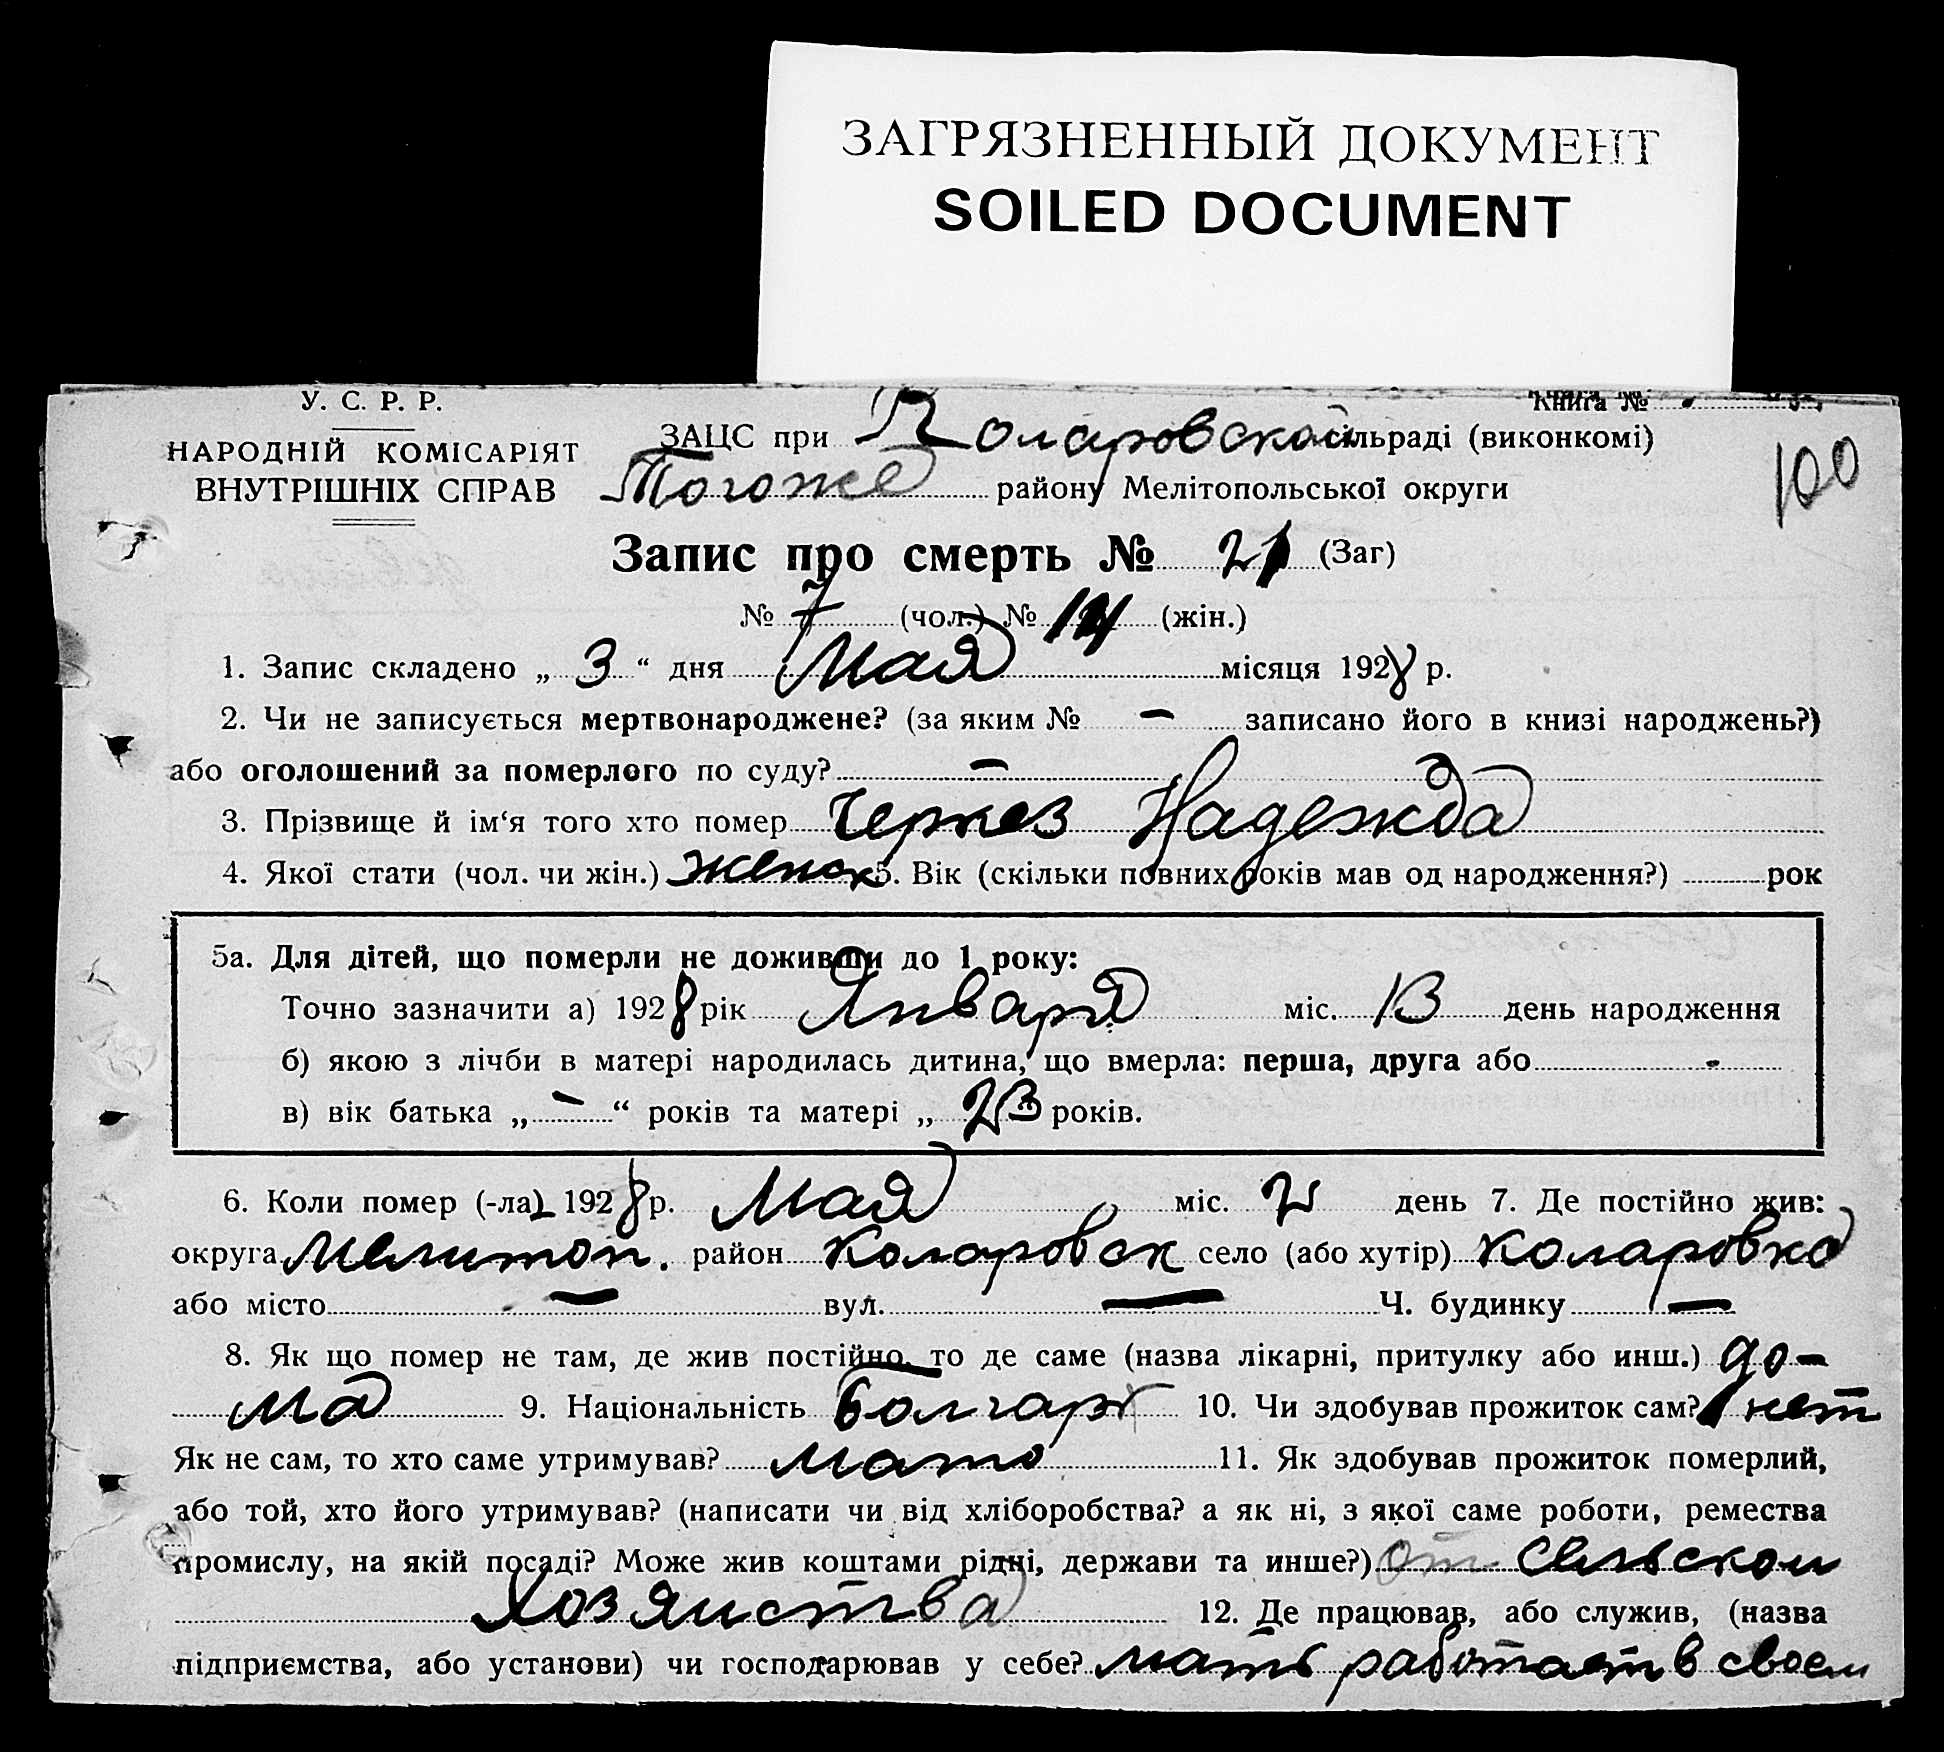 ЗАГРЯЗНЕННЫЙ ДОКУМЕНТ
SOILED DOCUMENT
У. С. Р. Р.
Книга №
НАРОДНІЙ КОМІСАРІЯТ
ВНУТРІШНІХ СПРАВ
ЗАЦС при Коларовской сільраді (виконкомі)
Тогоже району Мелітопольської округи
100
Запис про смерть № 21 (Заг)
№ 7 (чол.) № 14 (жін.)
1. Запис складено „ 3 “ дня Мая місяця 1928 р.
2. Чи не записується мертвонароджене? (за яким № — записано його в книзі народжень?)
або оголошений за померлого по суду? —
3. Прізвище й ім‘я того хто помер Черкез Надежда
4. Якої стати (чол. чи жін.) женск 5. Вік (скільки повних років мав од народження?) рок
5а. Для дітей, що померли не доживши до 1 року:
Точно зазначити а) 1928 рік Января міс. 13 день народження
б) якою з лічби в матері народилась дитина, що вмерла: перша, друга або -
в) вік батька „ — “ років та матері „ 23 років.
6. Коли помер (-ла) 1928 р. Мая міс. 2 день 7. Де постійно жив:
округа Мелитоп. район Коларовск село (або хутір) Коларовка
або місто — вул. — Ч. будинку —
8. Як що помер не там, де жив постійно, то де саме (назва лікарні, притулку або инш.) до-
ма 9. Національність Болгар 10. Чи здобував прожиток сам? нет
Як не сам, то хто саме утримував? мать 11. Як здобував прожиток померлий,
або той, хто його утримував? (написати чи від хліборобства? а як ні, з якої саме роботи, ремества
промислу, на якій посаді? Може жив коштами рідні, держави та инше?) от сельском
хозяиства 12. Де працював, або служив, (назва
підприємства, або установи) чи господарював у себе? мать работает в своем